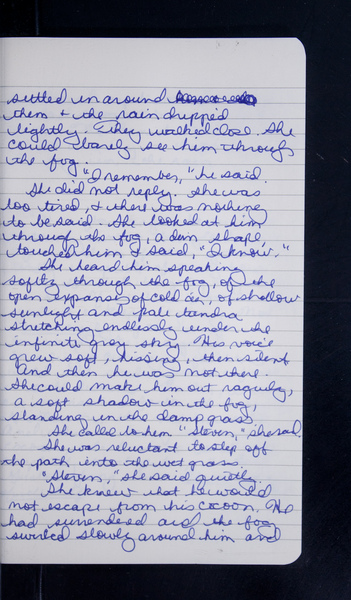 settled in around
them + the rain dripped
lightly. They walked close. She
could barely see him through
the fog.
"I remember," he said.
She did not reply. She was
too tired, & there was nothing
to be said. She looked at him
through the fog, a dim shape,
touched him & said, "I know."
She heard him speaking
softly through the fog, of the
open expanses of cold air, of shallow
sunlight and pale tundra
stretching endlessly under the
infinite gray sky. His voice
grew soft, hissing, then silent
And then he was not there.
She could make him out vaguely,
a soft shadow in the fog,
standing in the damp grass
She called to him "Steven," she said.
She was reluctant to step off
the path into the wet grass.
"Steven," she said quietly.
She knew that he would
not escape from his cocoon. He
had surrendered and the fog
swirled slowly around him and